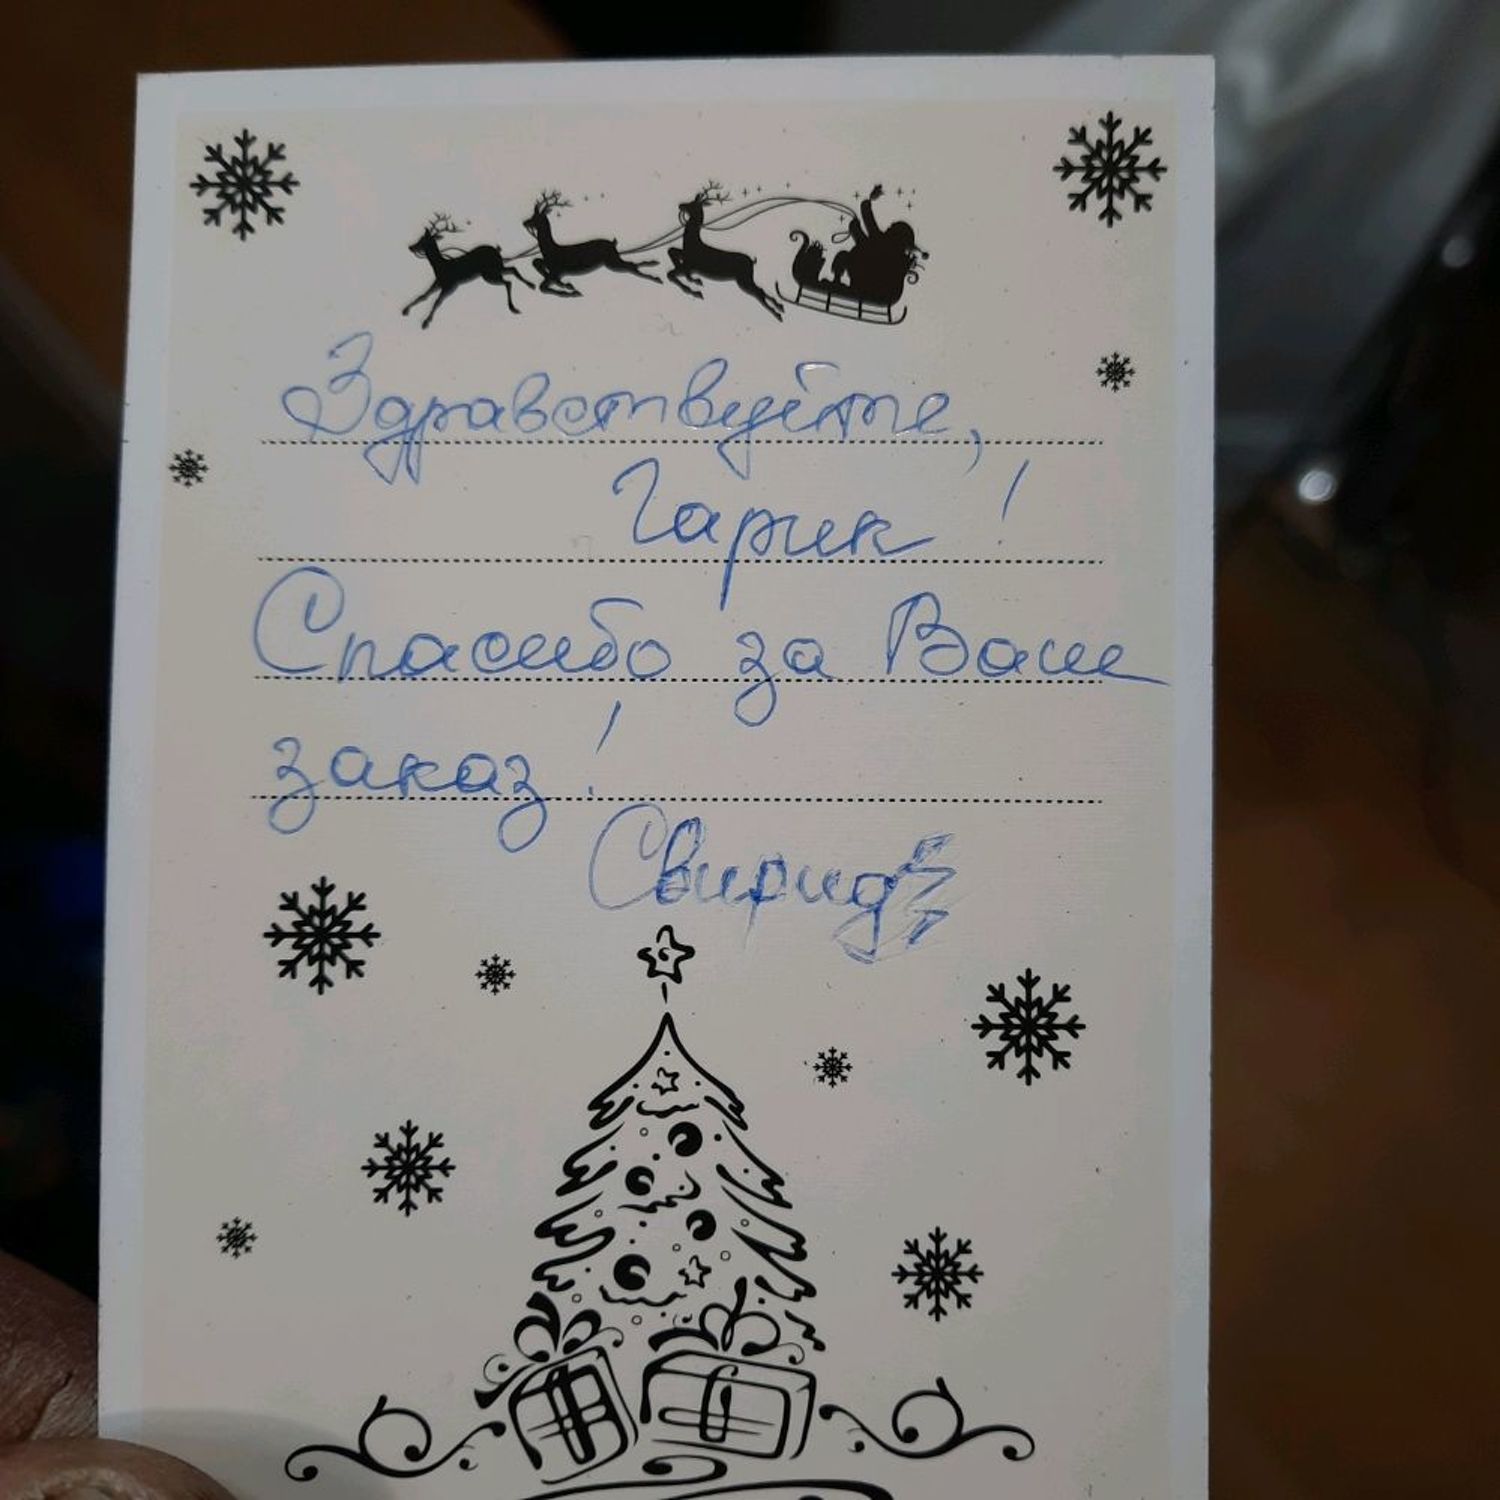 Здравствуйте,
Гарик!
Спасибо за Ваш
заказ!
Свирид